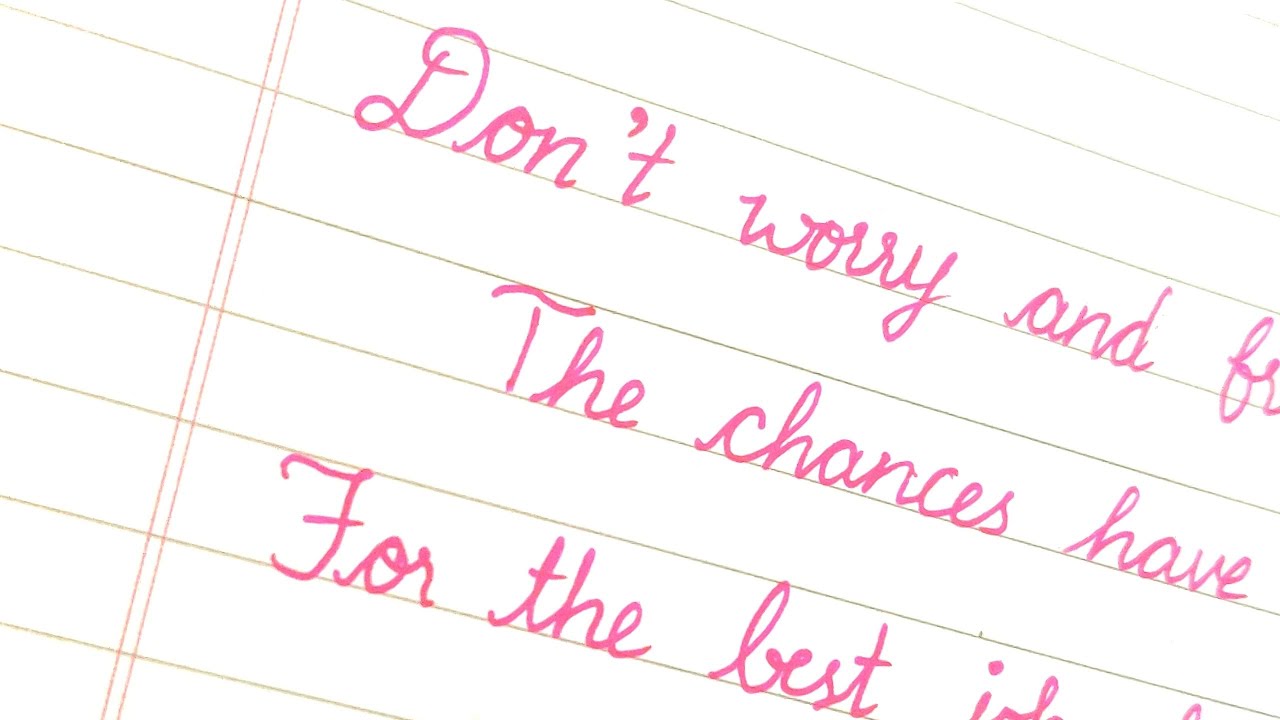 Don't worry and
The chances have
For the best